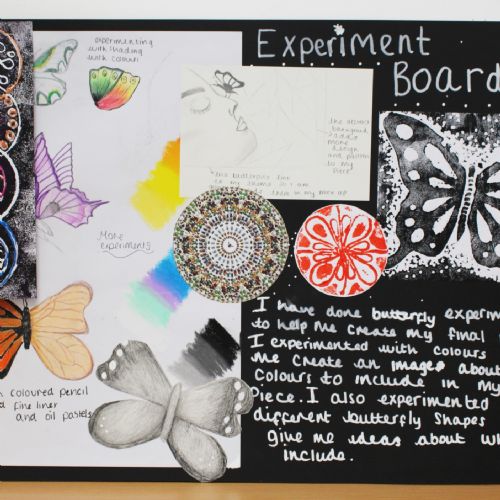 Experiment
Board
experimenting
with shading
with colour
the abstract
background
adds
more
design and pattern
to my
piece
this butterflies link
to my theme so I am
More
experiments
coloured pencil
fine liner
and oil pastels
I have done butterfly
to help me create my final
I experimented with colours
me create an images
colours to include in my
piece. I also experimented
different butterfly shapes
give me ideas about
include.